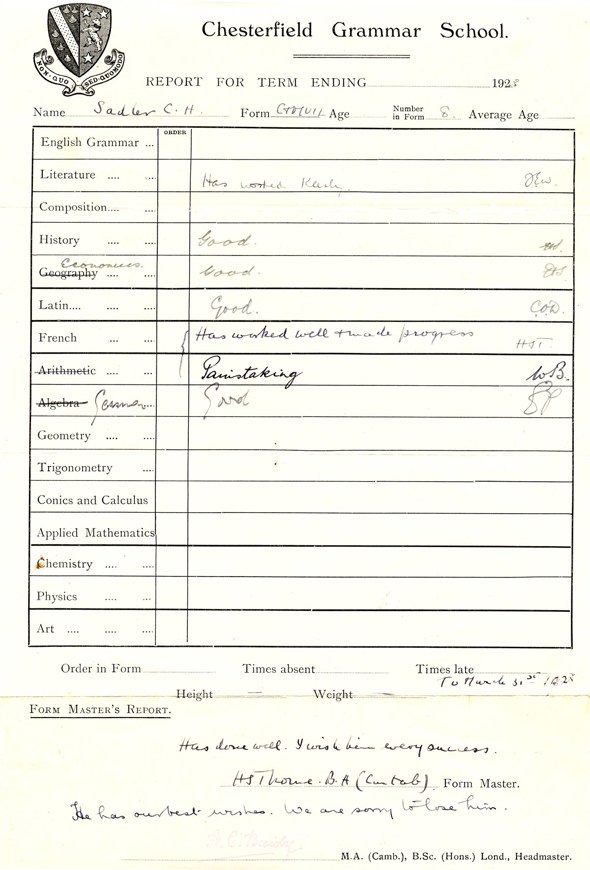 NON·QUO SED·QUOMODO
Chesterfield Grammar School.
REPORT FOR TERM ENDING 1928
Name Sadler C. H. Form Age Number in Form 8. Average Age
ORDER
English Grammar ...
Literature .... .... Has worked
Composition.... ....
History .... .... Good.
Geography Economics. .... .... Good.
Latin.... .... .... Good. C.O.D.
French .... .... Has worked well & made progress HST.
Arithmetic .... .... Painstaking WB.
Algebra German .... Good
Geometry .... ....
Trigonometry ....
Conics and Calculus
Applied Mathematics
Chemistry .... ....
Physics .... ....
Art .... .... ....
Order in Form Times absent Times late
To March 31st 1928
Height — Weight —
FORM MASTER'S REPORT.
Has done well. I wish him every success.
HSThorne. B.A (Cantab). Form Master.
He has our best wishes. We are sorry to lose him.
M.A. (Camb.), B.Sc. (Hons.) Lond., Headmaster.